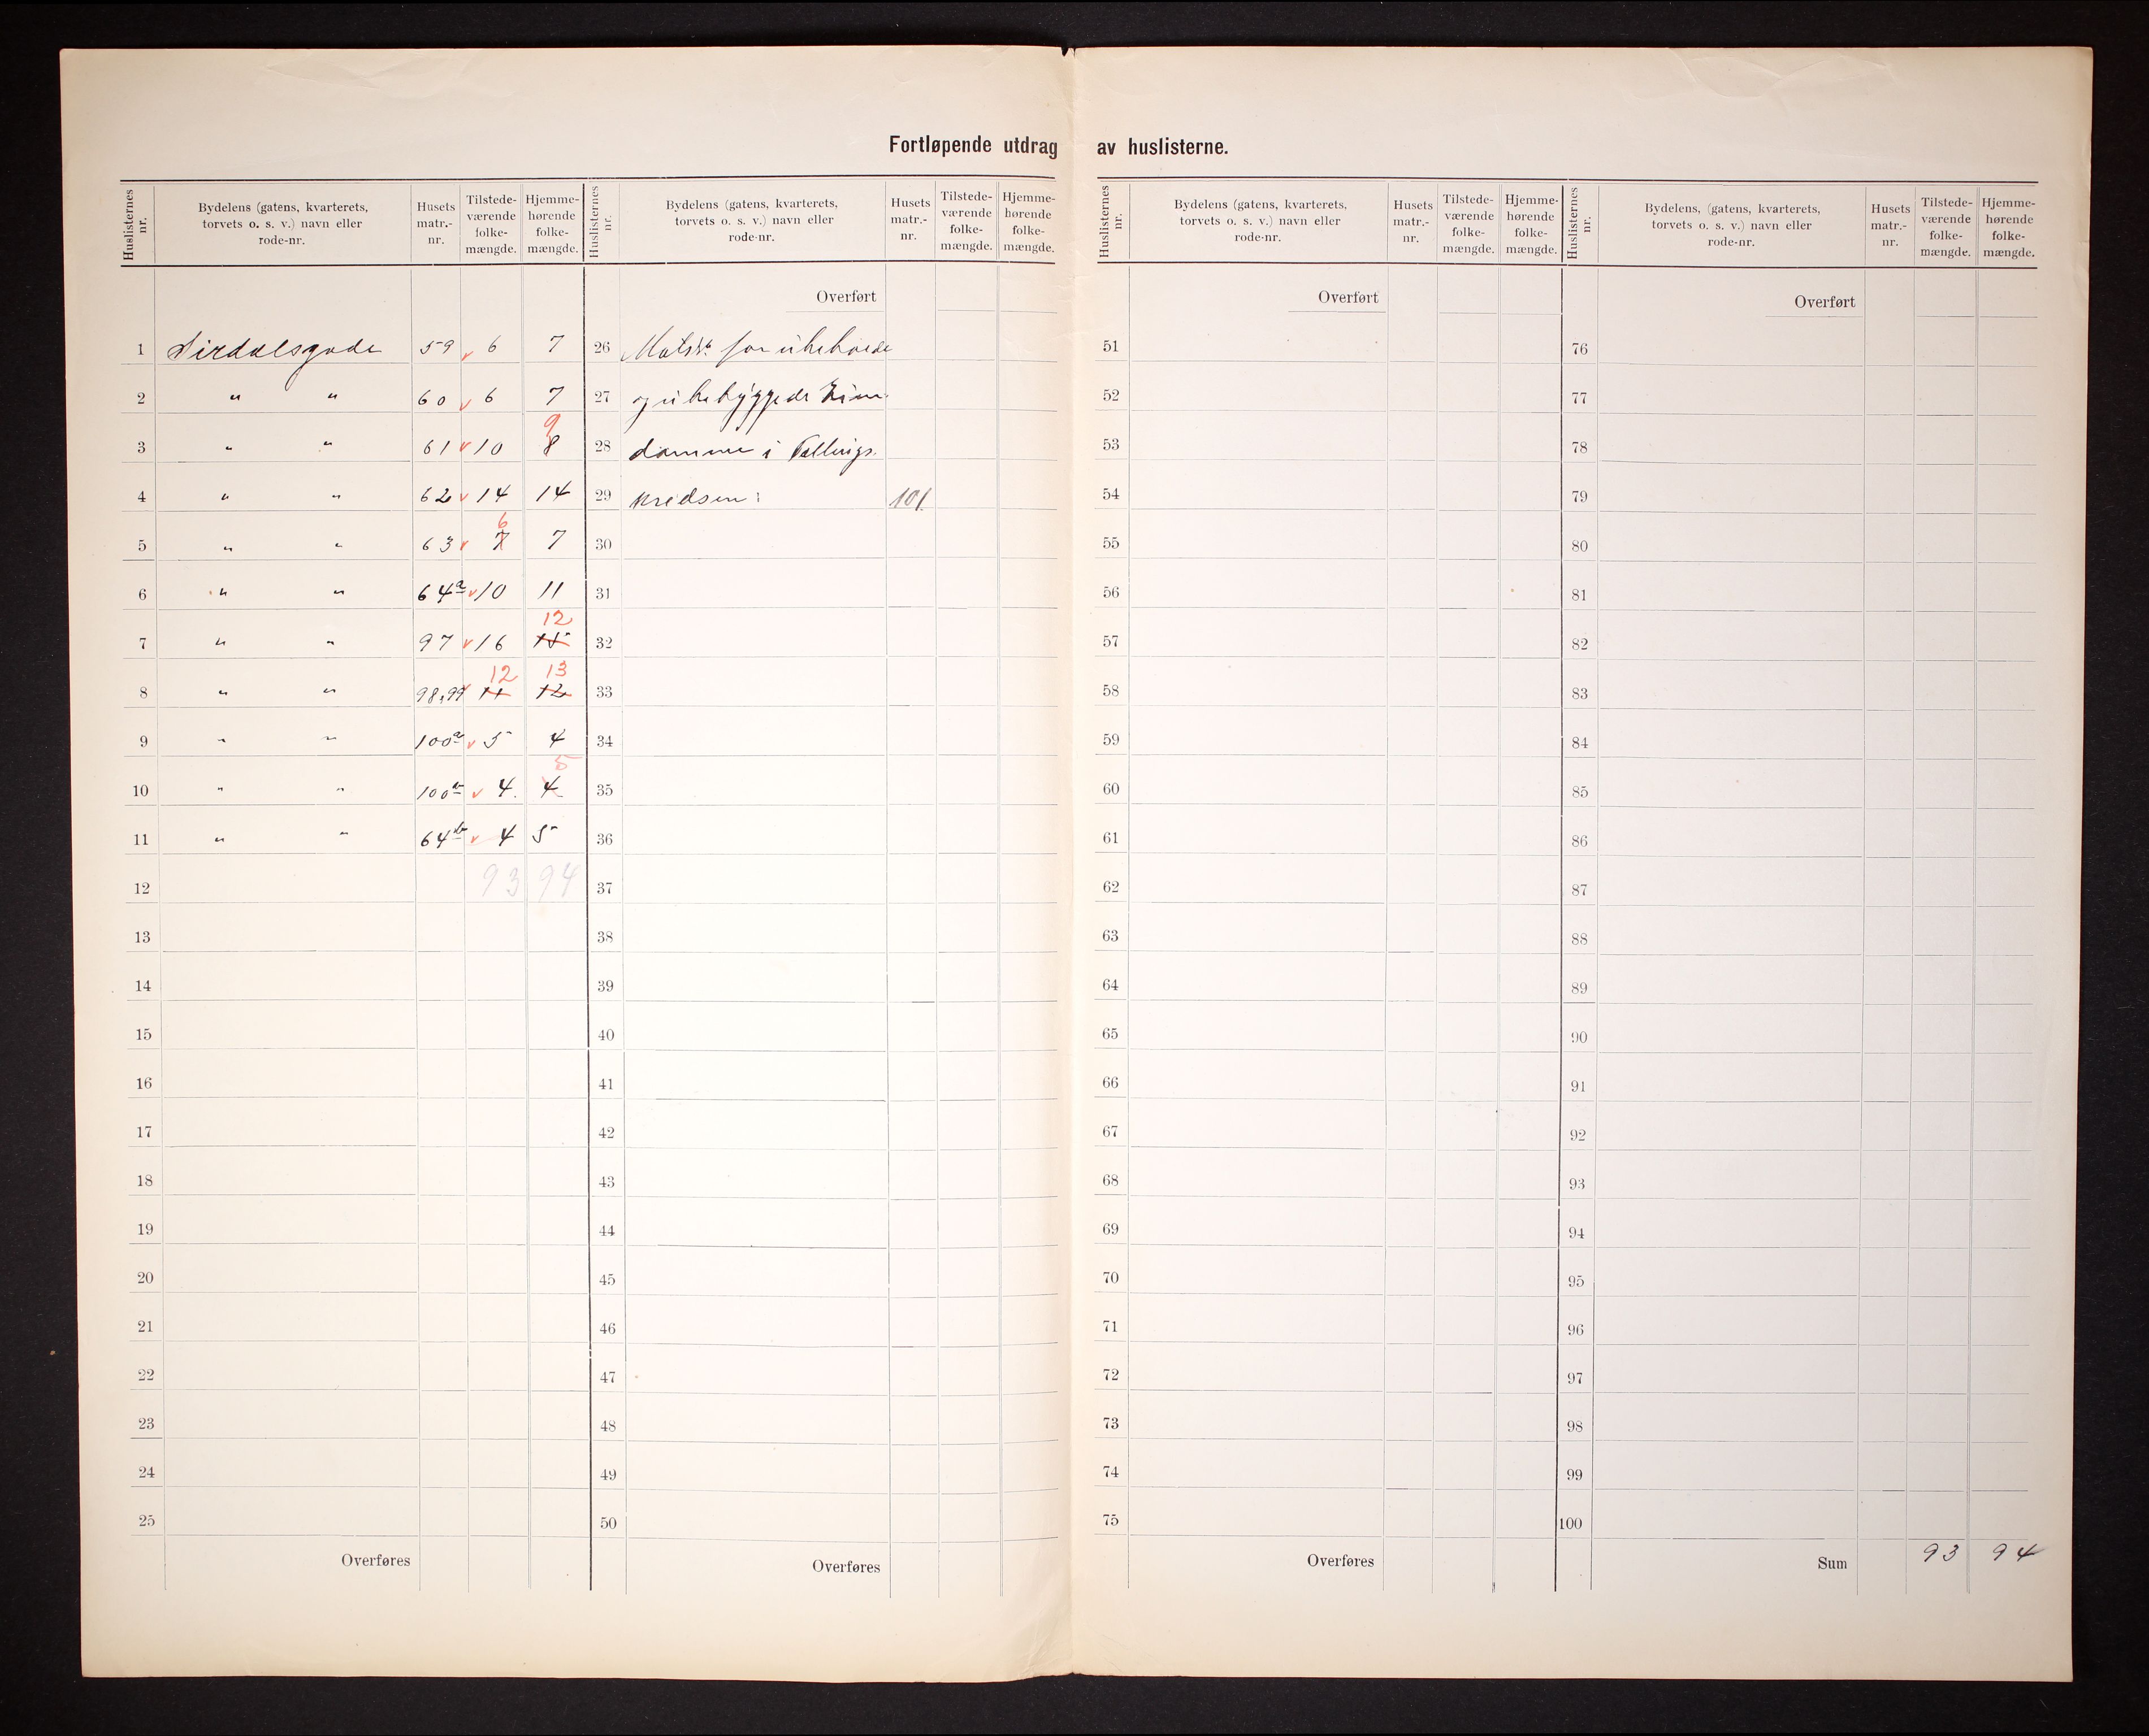 Fortløpende utdrag av huslisterne.
Huslisternes nr. Bydelens (gatens, kvarterets, torvets o. s. v.) navn eller rode-nr. Husets matr.-nr. Tilstede-værende folke-mængde. Hjemme-hørende folke-mængde.
1 Sirdalsgade 59 v 6 7
2 " " 60 v 6 7
3 " " 61 v 10 8 9
4 " " 62 v 14 14
5 " " 63 v 7 6 7
6 " " 64a v 10 11
7 " " 97 v 16 15 12
8 " " 98,99 v 11 12 12 13
9 " " 100a v 5 4
10 " " 100b v 4. 4 5
11 " " 64b v 4 5
12 93 94
13
14
15
16
17
18
19
20
21
22
23
24
25
Overføres
Huslisternes nr. Bydelens (gatens, kvarterets, torvets o. s. v.) navn eller rode-nr. Husets matr.-nr. Tilstede-værende folke-mængde. Hjemme-hørende folke-mængde.
Overført
26 for ubeboede
27 og ubebyggede Eien-
28 domme i Tællings-
29 kredsen: 101
30
31
32
33
34
35
36
37
38
39
40
41
42
43
44
45
46
47
48
49
50
Overføres
Huslisternes nr. Bydelens (gatens, kvarterets, torvets o. s. v.) navn eller rode-nr. Husets matr.-nr. Tilstede-værende folke-mængde. Hjemme-hørende folke-mængde.
Overført
51
52
53
54
55
56
57
58
59
60
61
62
63
64
65
66
67
68
69
70
71
72
73
74
75
Overføres
Huslisternes nr. Bydelens, (gatens, kvarterets, torvets o. s. v.) navn eller rode-nr. Husets matr.-nr. Tilstede-værende folke-mængde. Hjemme-hørende folke-mængde.
Overført
76
77
78
79
80
81
82
83
84
85
86
87
88
89
90
91
92
93
94
95
96
97
98
99
100
Sum 93 94